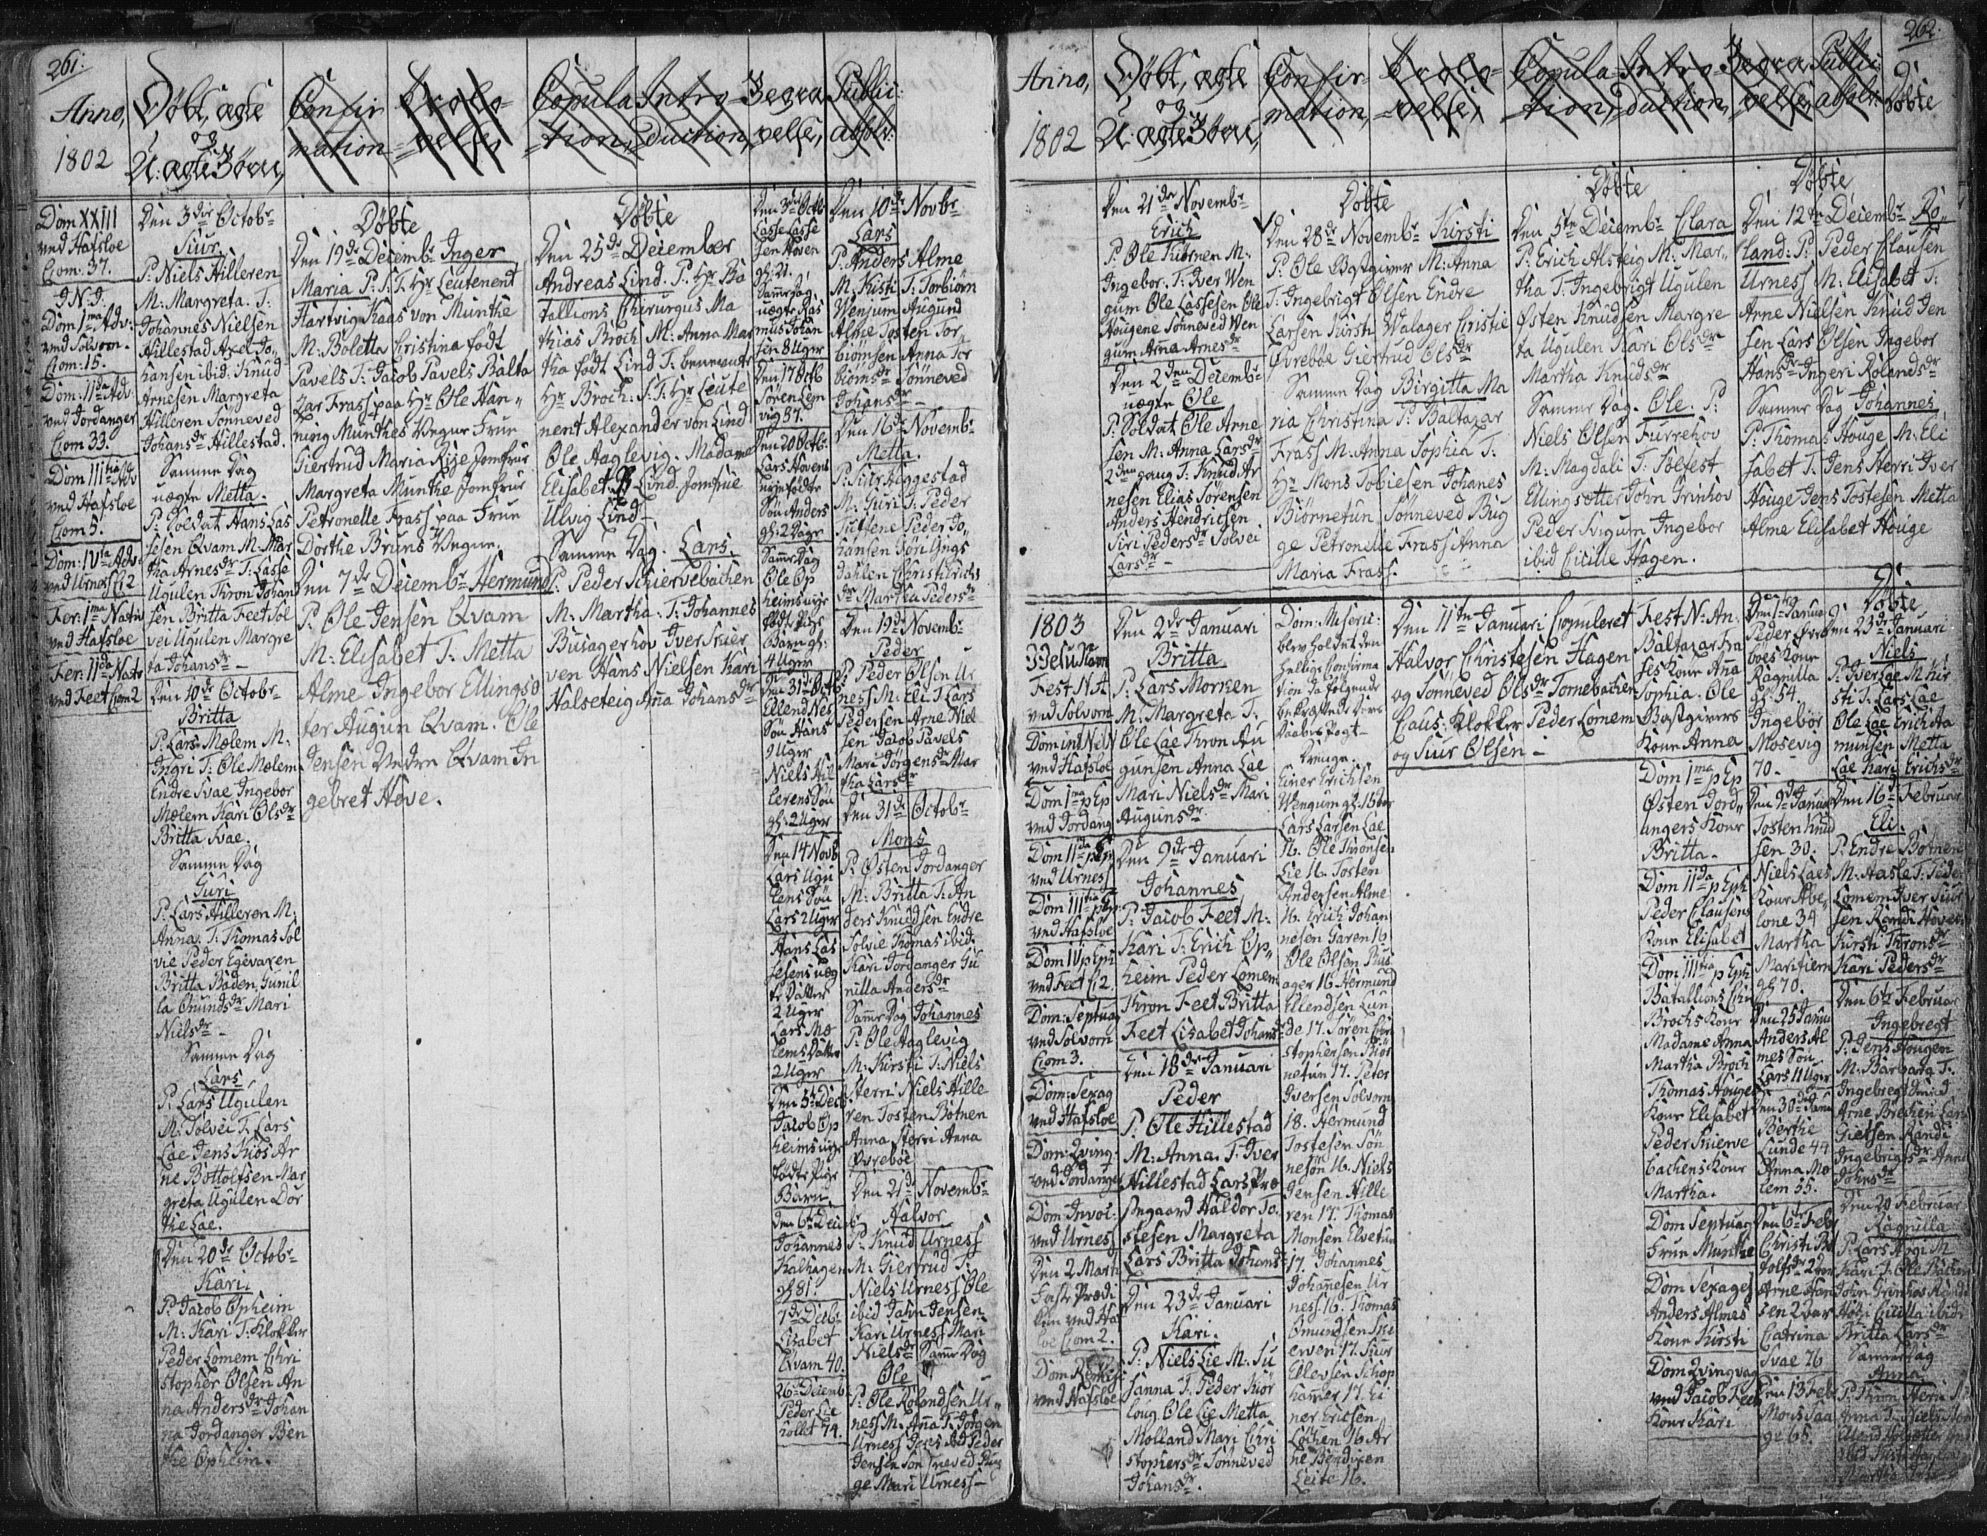 261:
Anno,
1802
Døbt, ægte
og
U:ægte Børn,
Confir
mation
Trolo-
velse,
Copula
tion,
Intro-
duction,
Begra
velse,
Publi:
absolv:
Dom XXIII
ved Hafsloe
Com. 37.
J. N. J.
Dom 1ma Adv:
ved Solvorn.
Com: 15.
Dom: 11da Adv
ved Jordanger
Com 33.
Dom 111tia Adv
ved Hafsloe
Com 5.
Dom: 1Vta Adv:
ved Urnes C: 2
Fer: 1ma Nativ
ved Hafsloe
Fer: 11da Nativ
ved Feet Com 2
Den 3die Octobr
Siur
P: Niels Hilleren
M: Margreta. T:
Johannes Nielsen
Hillestad Axel Jo-
hansen ibid: Knud
Arnesen Margreta
Hilleren Sönneved
Johansdr Hillestad.
Samme Dag
uægte Metta.
P: Soldat Hans Las
sesen Qvam M: Mar
tha Arnesdr T: Lasse
Ugulen Thron Johan
sen Britta Feet Sol
vei Ugulen Margre
ta Johansdr -
Den 10de Octobr
Britta
P: Lars Mælem M:
Ingri T: Ole Mælem
Endre Svae Ingebor
Mælem Kari Olsdr
Britta Svae.
Samme Dag
Guri
P: Lars Hilleren M:
Anna. T: Thomas Sol
vie Peder Egevaren
Britta Baden, Gunil
la Omundsdr Mari
Nielsdr -
Samme Dag
Lars
P: Lars Ugulen
M: Solvei T: Lars
Lae Jens Kiös Ar
ne Bottolfsen Mar
greta Ugulen Dor
the Lae.
Den 20de Octobr
Kari.
P: Jacob Opheim
M: Kari T: Klokker
Peder Lomem Chri
stopher Olsen An
na Andersdr Johan
na Jordanger Ben
the Opheim.
Døbte
Den 19de Decembr Inger
Maria P: S: T: Hr Leutenent
Hartvig Kaas von Munthe
M: Boletta Cristina født
Pavels T: Jacob Pavels Balta
zar Frass paa Hr Ole Han-
ning Munthes Vegne Frue
Giertrud Maria Rise Jomfrue
Margreta Munthe Jomfrue
Petronelle Frass paa Frue
Dorthe Bruns Vegne.
Den 7de Decembr Hermund
P: Ole Jensen Qvam
M: Elisabet T: Metta
Alme Ingebor Ellingsö
ter Augun Qvam. Ole
Jensen Anden Qvam In
gebret Hove.
Døbte
Den 25de December
Andreas Lind. P: Hr Ba
tallions Chirurgus Ma
thias Broch M: Anna Mar
tha født Lind T: benevnte
Hr Broch. S: T: Hr Leute
nent Alexander von Lind
Ole Aaglevig. Madame
Elisabet Lind. Jomfrue
Ulvig Lind -
Samme Dag. Lars.
P: Peder Skiervebachen
M: Martha: T: Johannes
Busagerhov Iver Svier
ven Hans Nielsen Kari
Halseteig Ana Johansdr
Den 3de Octb
Lasse Lasse
sen Hoven
gl: 21.
Samme Dag
uægte Ras
mus Johan
sen 8 Uger
Den 17 Octb
Sören Lem
vig 87.
Den 20 Octb:
Lars Hovens
nyefødte
Søn Anders
gl: 2 Dage
Samme Dag
Ole Op
heims nye
født Pige
Barn gl:
4 Uger
Den 31de Octb
Ellend Nes
Søn Hans
9 Uger
Niels Hil
lerens Søn
gl: 2 Uger
Den 14 Novb
Lars Ugu
lens Søn
Lars 2 Uger
Hans Las
sesens uæg
te Datter
2 Uger
Lars Mæ
lems Datter
2 Uger
Den 5te Decb
Jacob Op
heims nye
fødte Pige
Barn
Den 6te Decbr
Johannes
Kalhagen
gl: 81.
7de Decb:
Lisabet
Qvam 40.
26de Decemb:
Peder Lie
kollet 74.
Den 10de Novbr
Lars
P: Anders Alme
M: Kirsti T: Torbiörn
Wensum Augund
Alme Tosten Tor
biörnsen Anna Tor
biörnsdr Sönneved
Johansdr -
Den 16de Novembr
Metta.
P: Siur Heggestad
M: Guri T: Peder
Tuftene Peder Jo
hansen Göri Yngs
dahlen Christi Erichs
dr Martha Pedersdr
Den 19de Novembr
Peder
P: Peder Olsen Ur
ness M: Eli T: Lars
Pedersen Arne Niel
sen Jacob Pavels
Mari Jörgensdr Mar
tha Larsdr
Den 31de Octobr
Mons
P: Østen Jordanger
M: Britta T: An
ders Knudsen Endre
Solvie Thomas ibid:
Kari Jordanger Gu
nilla Andersdr
Samme Dag Johannes
P: Ole Aaglevig
M: Kirsti T: Niels
Herri Niels Hille
ren Tosten Botnen
Anna Herri Anna
Övreboe
Den 21de Novembr
Halvor
P: Knud Urness
M: Giertrud T:
Niels Urness Ole
ibid Jahn Jensen
Kari Urness Mari
Nielsdr Samme Dag
Ole
P: Ole Rolandsen Ur-
ness M: Ana T: Jörgen
Urness Jens ibid Peder
Jensen Sönneved Bug
ge Mari Urness -
262.
Anno,
1802
Døbt, ægte
og
U:ægte Børn,
Confir-
mation,
Trolo-
velse,
Copula
tion,
Intro-
duction,
Begra
velse,
Publi:
absolv:
Døbte
Den 21de Novembr
Erich
P: Ole Kiörnen M:
Ingebor: T: Iver Wen
gum Ole Lassesen Ole
Hougene Sönneved Wen
gum Anna Arnesdr
Den 2den Decembr
uægte Ole
P: Soldat Ole Arne
sen M: Anna Larsdr
2den gang T: Knud Ar
nesen Elias Sörensen
Anders Hendricsen
Siri Pedersdr Solvei
Larsdr -
Døbte
Den 28de Novembr Kirsti
P: Ole Bøstgiver M: Anna
T: Ingebrigt Olsen Endre
Larsen Kirsti Walager Christie
Övreböe Giertrud Olsdr
Samme Dag Birgitta Ma
ria Christina P: Baltazar
Frass M: Anna Sophia T:
Hr Mons Tobiesen Johanes
Biörnetun Sönneved Bug
ge Petronelle Frass Anna
Maria Frass.
Døbte
Den 5te Decembr Clara
P: Erich Alsteig M: Mar-
tha T: Ingebrigt Ugulen
Østen Knudsen Margre
ta Ugulen Kari Olsdr
Martha Knudsdr
Samme Dag. Ole P:
Niels Olsen Furrehov
M: Magdali T: Solfest
Ellingsætter John Grinhov
Peder Svigum Ingebor
ibid Cicille Hagen.
Døbte
Den 12te Decembr Ro-
land: P: Peder Clausen
Urness M: Elisabet T:
Arne Nielsen Knud Jen
sen Lars Olsen Ingebor
Hansdr Ingeri Rolandsdr
Samme Dag Johannes
P: Thomas Houge M: Eli
sabet T: Jens Herri Iver
Houge Jens Tostesen Metta
Alme Elisabet Houge
1803
Fest N: A
ved Solvorn
ved Hafsloe
Dom 1ma p Ep
ved Jordang
Dom 11da p Ep
ved Urness
Dom 111tia p Ep:
ved Hafsloe
Dom 1V p Eph
ved Feet C: 2.
Dom: Septuag
ved Solvorn
Com 3.
Dom: Sexag
ved Hafsloe
Dom: Qving:
ved Jordanger
Dom: Invoc:
ved Urness
Den 2 Marti
Faste Prædi
ken ved Ha
sloe Com 2.
ved Hafsloe
Den 2de Januari
Britta
P: Lars Morken
M: Margreta T:
Ole Lae Thron Au
gunsen Anna Lae
Mari Nielsdr Mari
Augunsdr
Den 9de Januari
Johannes
P: Jacob Feet M:
Kari T: Erich Op-
heim Peder Lomem
Thron Feet Britta
Feet Lisabet Johansdr
Den 18de Januari
Peder
P: Ole Hillestad
M: Anna. T: Iver
Hillestad Lars Præ
stegaard Haldor To
stesen Margreta
Lars Britta Johansdr
Den 23de Januari
Kari.
P: Niels Lie M: Su
sanna T: Peder Kiör
loug Ole Lie Metta
Molland Mari Chri
stophersdr Sönneved
Johansdr.
Dom: Miseric:
blev holdet den
hellige Confirma
tion da følgende
bekræftede deres
Daabes Pagt -
Drenge.
Einer Erichsen
Wengum gl. 16 aar
Lars Larsen Lae
16. Ole Thronsen
Lie 16. Tosten
Andersen Alme
16. Erich Johan
nesen Garen 16
Ole Olsen Bus
ager 16 Hermund
Ellendsen Lun
de 17. Sören Chri
stophersen Biör
netun 17. Peter
Iversen Solvorn
18. Hermund
Tostesen Søn
nesön 16. Niels
Jensen Hille
ren 17. Thomas
Monsen Elvetun
17. Johannes
Johanesen Ur
ness 16. Thomas
Omundsen Ski
erven 17. Siur
Ellevsen Schop
hamer 17. Ei
ner Ericsen
Lochen 16. Ar
ne Bendixen
Leite 16.
Den 11te Januari Copuleret
Halvor Christesen Hagen
og Sönneved Olsdr Tornebachen
Caus. Klokker Peder Lomem
og Siur Olsen -
Fest N: An:
Baltazar Fra
ses Kone Ana
Sophia. Ole
Bøstgivers
Kone Anna
Dom 1ma p Ep
Østen Jord-
angers Kone
Britta.
Dom 11da p Eph
Peder Clausens
Kone Elisabet
Dom: 111tia p Eph
Batallions Chir
Brochs Kone
Madame Anna
Martha Broch
Thomas Houges
Kone Elisabet
Peder Skierve
bachens Kone
Martha.
Dom Septuag
Frue Munthe
Dom Sexages
Anders Almes
Kone Kirsti
Dom Qvingvag
ved Jacob Feets
Kone Kari
Ragnilla
gl: 54
Ingebor
Mosevig
70.
Den 9de Januar
Tosten Knud
sen 30.
Niels Laes
Kone Abe-
lone 34
Martha
gl: 70.
Den 25 Janu
Anders Al
mes Søn
Lars 11 Uger
Den 30de Janu
Berthe
Lunde 44
Anna Mæ
lem 55.
Den 6te Febr
Arne Han
sen 2 Aar
Catrina
Svae 76
Den 13 Febr
Døbte
Den 23de Januari
Niels
sti T: Lars Lae
Ole Lae Erich Aa
munsen Metta
Lae Kari Erichsdr
Den 16de Februar
Eli.
P: Endre Botnen
Lomem Iver Siur
sen Randi Hoven
Kirsti Thronsdr
Kari Pedersdr
Den 6te Februar
Ingebregt
P: Jens Hougen
M: Barbara T.
Johnsdr
Den 20 Februar
Ragnilla
Britta Larsdr
Samme Dag
Anna